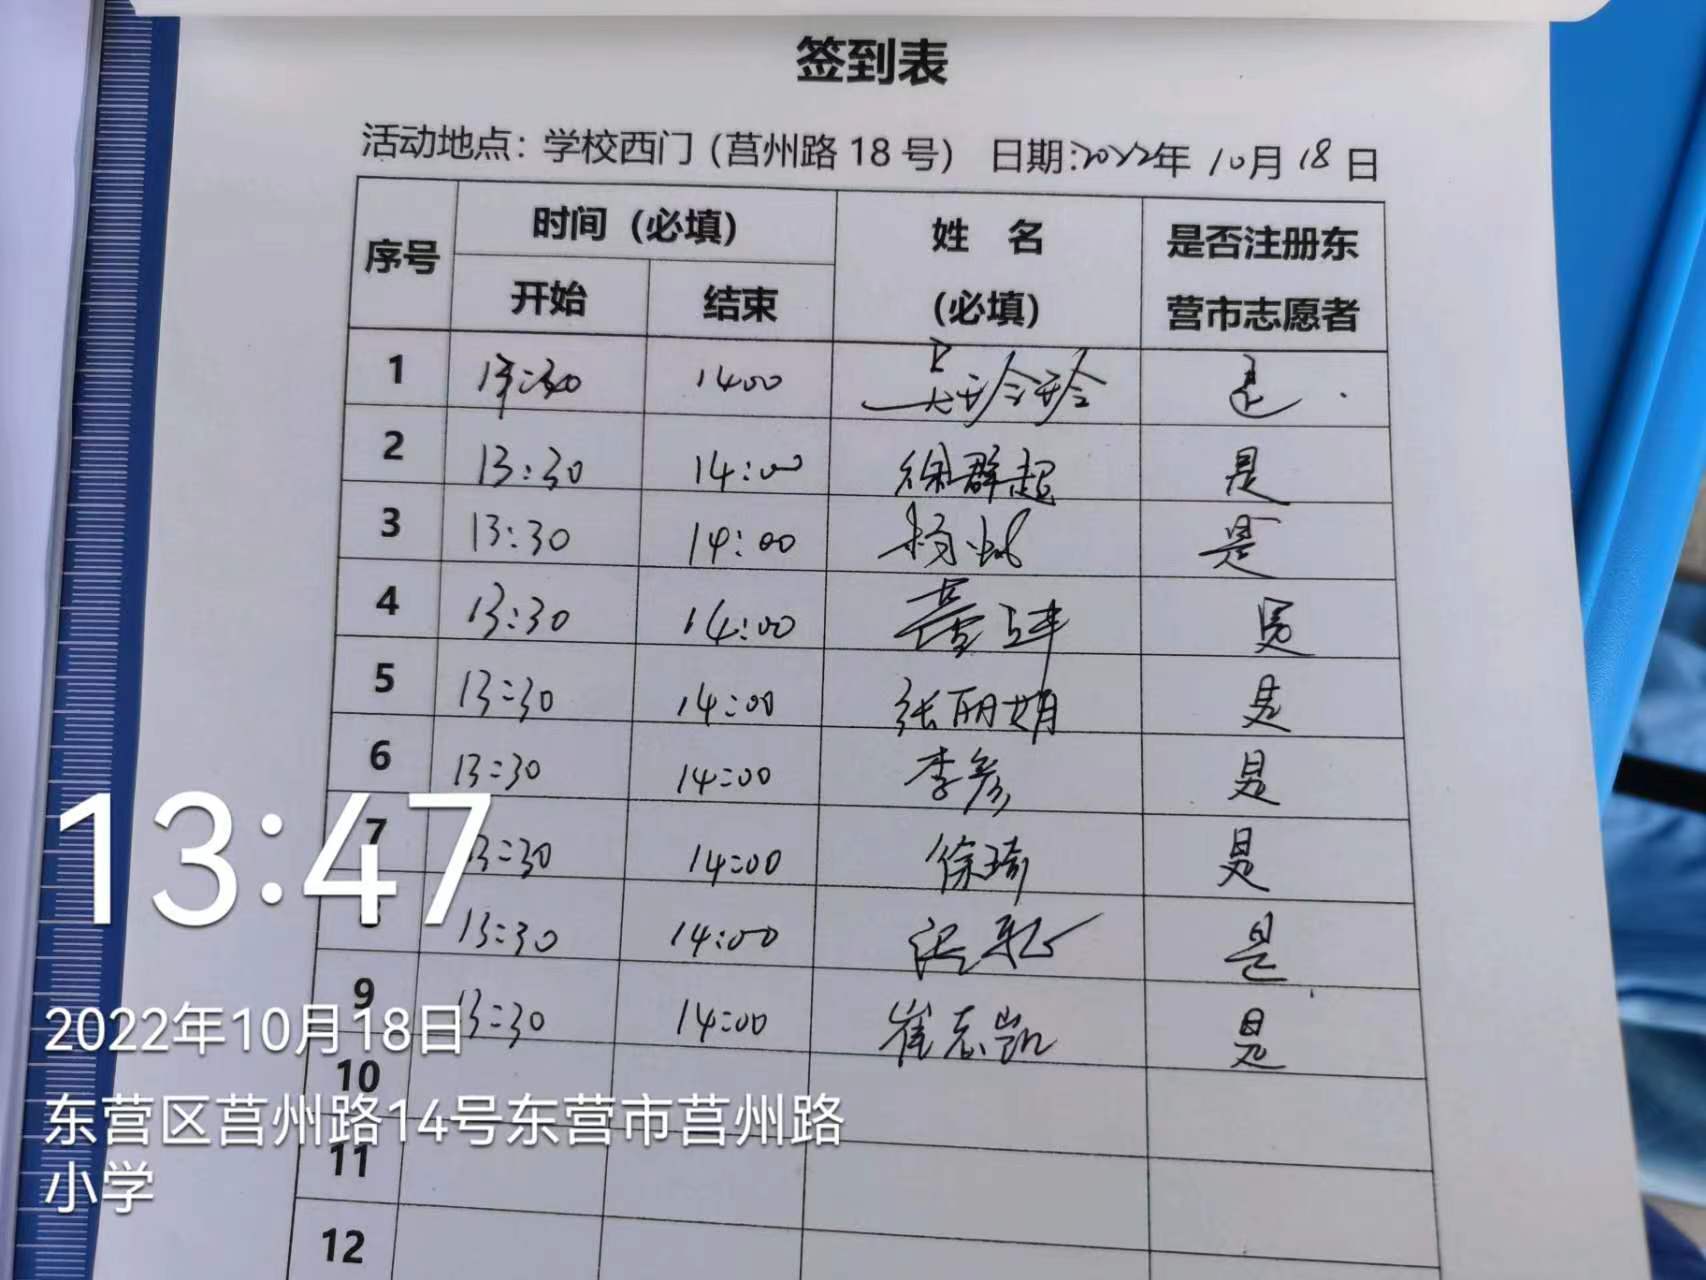 签到表
活动地点：学校西门（莒州路 18 号） 日期:2022年 10月 18 日
序号 时间（必填） 姓 名 （必填） 是否注册东营市志愿者
开始 结束
1 13:30 1400 吴珍珍 是
2 13:30 14:00 徐群超 是
3 13:30 14:00 杨 是
4 13:30 14:00 是
5 13:30 14:00 张丽娟 是
6 13:30 14:00 李彦 是
7 13:30 14:00 徐琦 是
8 13:30 14:00 是
9 13:30 14:00 崔志凯 是
10
11
12
13:47
2022年10月18日
东营区莒州路14号东营市莒州路
小学